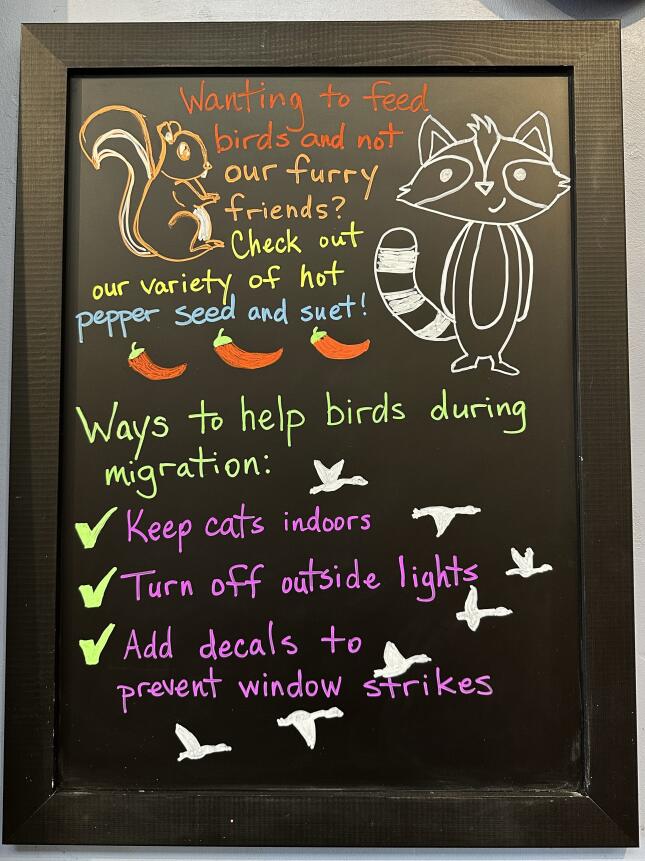 Wanting to feed
birds and not
our furry
friends?
Check out
our variety of hot
pepper seed and suet!
Ways to help birds during
migration:
Keep cats indoors
Turn off outside lights
Add decals to
prevent window strikes